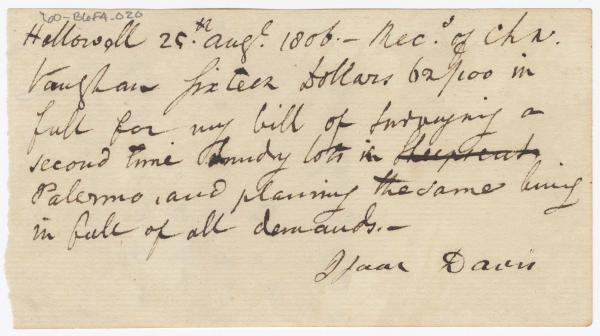 60-B6F4-020
Hollowell 25th augt. 1806.- Recd. of Chs.
Vaughan Sixteen Dollars 62/100 in
full for my bill of Surveying a
second time Sundry lots in
Palermo, and planing the same being
in full of all demands.-
Isaac Davis